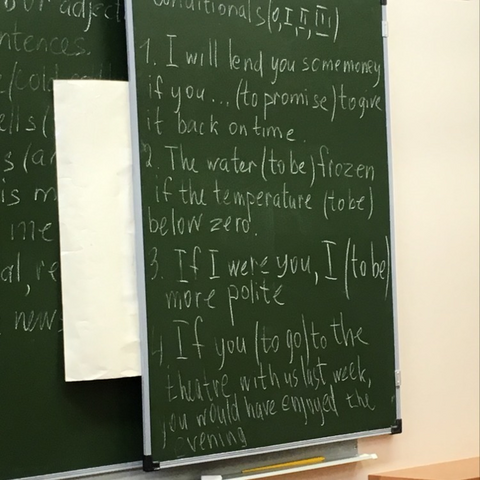 or adject
ntences.
conditionals (0, I, II, III)
1. I will lend you some money
if you... (to promise) to give
it back on time.
2. The water (to be) frozen
if the temperature (to be)
below zero.
3. If I were you, I (to be)
more polite
4 If you (to go) to the
theatre with us last week,
you would have enjoyed the
evening